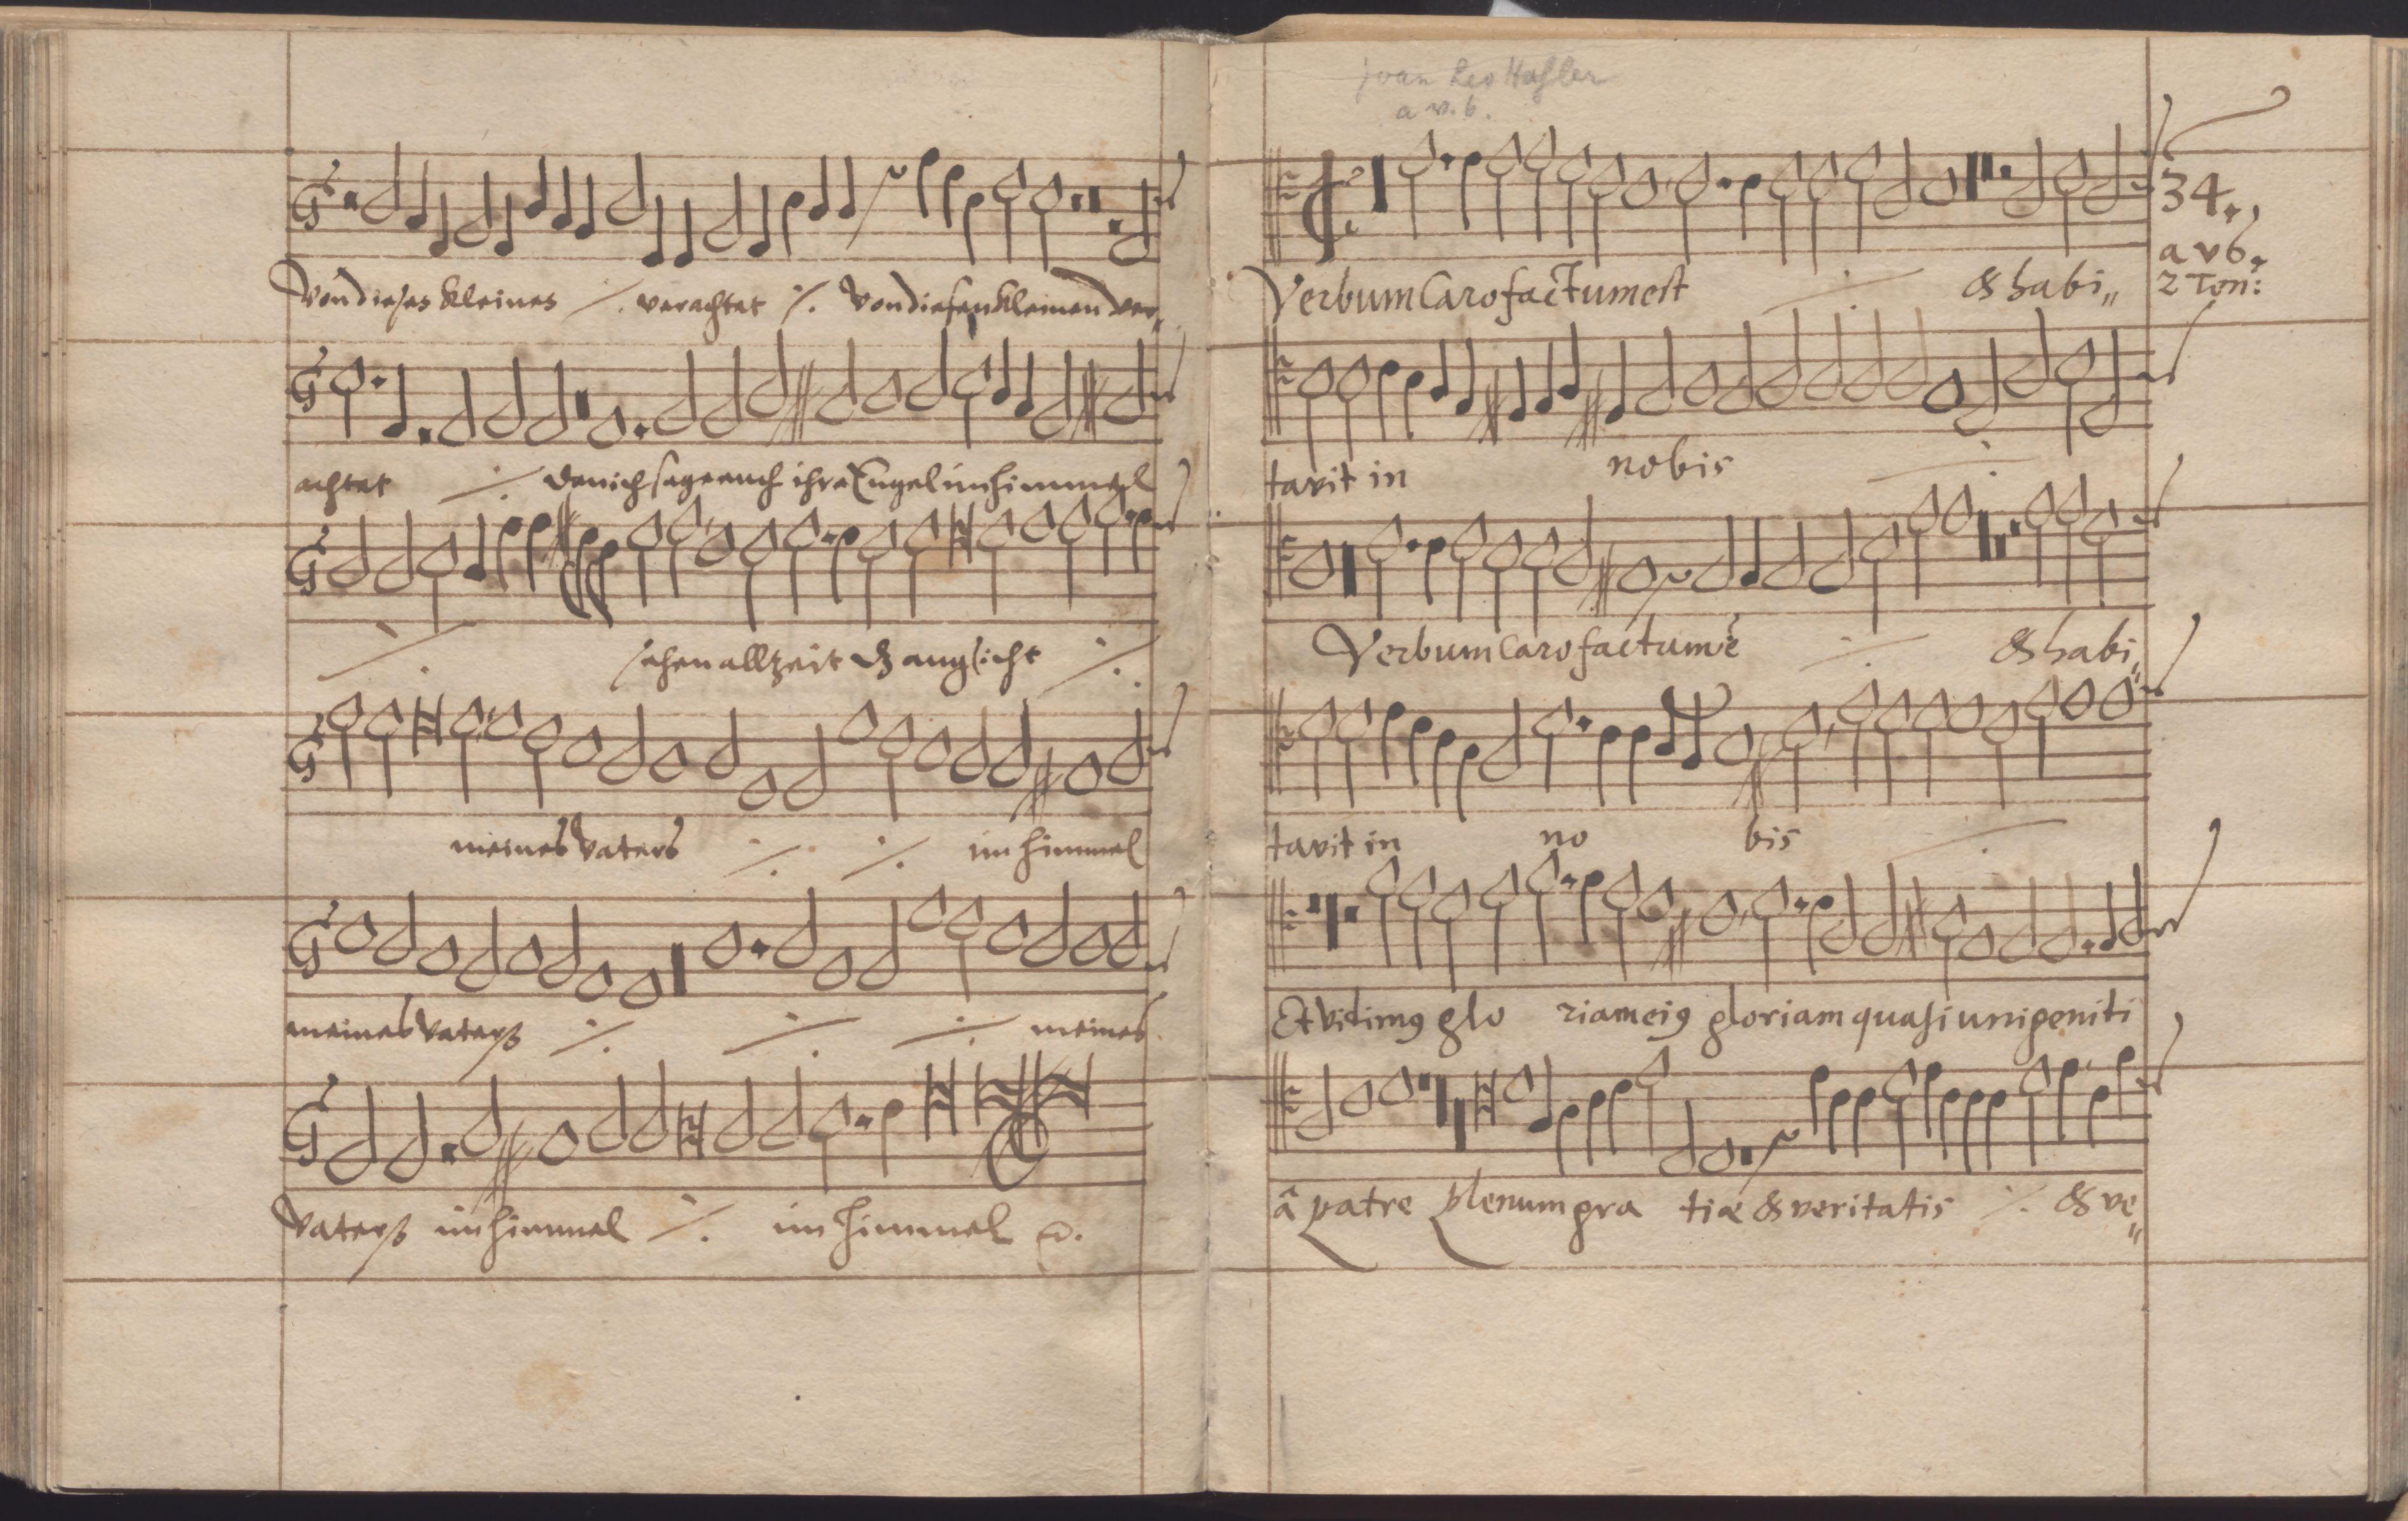 Von dieses kleines ⁒ verachtet ⁒ Von diesen kleinen ver„
achtet ⁒ den ich sage euch ihre Engel im himmel
⁒ sehen allzeit dz angsicht ⁒
meines Vaters ⁒ ⁒ im himmel
meines Vaterß ⁒ ⁒ ⁒ meines
Vaterß im himmel ⁒ im himmel
Joan Leo Haßler
a v. 6.
34.
a v 6.
2 Ton:
Verbum Caro factum est ⁒ & habi„
tavit in nobis ⁒
Verbum caro factum ē ⁒ & habi„
tavit in no bis ⁒
Et vidimꝰ glo riam eiꝰ gloriam quasi unigeniti
â patre plenum gra tiæ & veritatis ⁒ & ve„